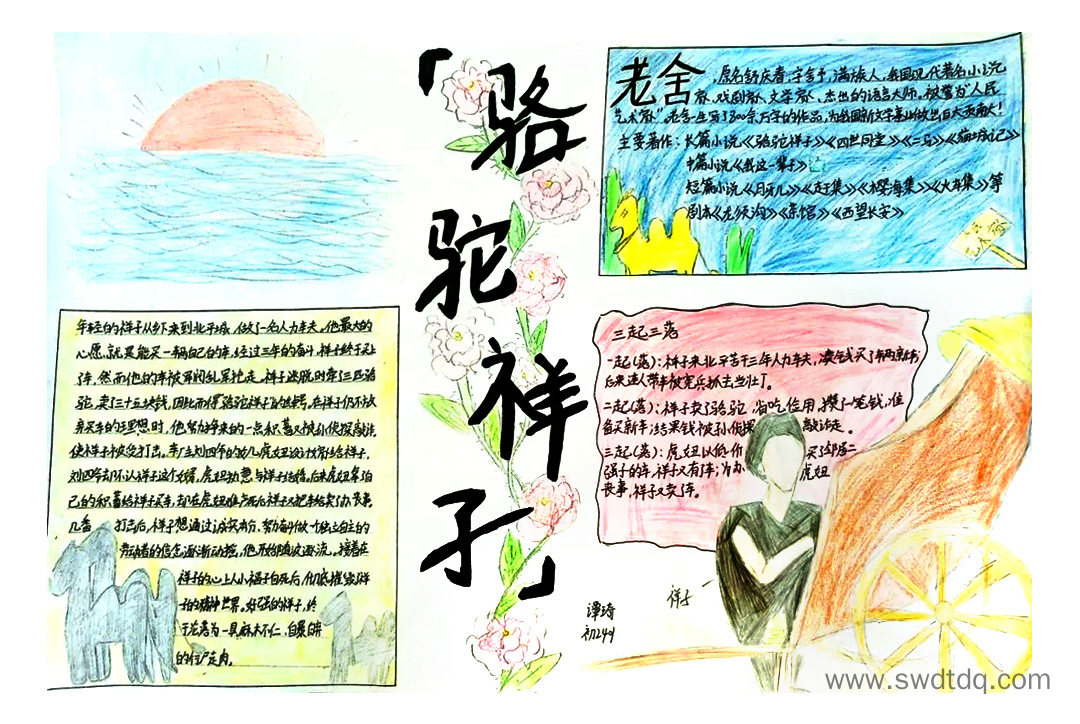 「骆驼祥子」
老舍，原名舒庆春，字舍予，满族人，我国现代著名小说
家、戏剧家、文学家、杰出的语言大师，被誉为"人民
艺术家"。老舍一生写了800余万字的作品，为我国新文学事业做出巨大贡献！
主要著作：长篇小说《骆驼祥子》《四世同堂》《二马》《猫城记》
中篇小说《我这一辈子》
短篇小说《月牙儿》《赶集》《樱海集》《火车集》等
剧本《龙须沟》《茶馆》《西望长安》
年轻的祥子从乡下来到北平城，做了一名人力车夫。他最大的
心愿，就是能买一辆自己的车，经过三年的奋斗，祥子终于买上
了车，然而他的车被军阀乱军抢走。祥子逃脱时牵了三匹骆
驼，卖了三十五块钱，因此而得骆驼祥子的绰号。在祥子仍不放
弃买车的理想时，他努力挣来的一点积蓄又被孙侦探敲诈
使祥子十分受打击。车厂主刘四爷的女儿虎妞设计嫁给祥子，
刘四爷却不认祥子这个女婿，虎妞执意与祥子结婚。后来虎妞拿自
己的积蓄给祥子买车，却在虎妞难产死后祥子又把车给卖了办丧事。
几番 打击后，祥子想通过诚实本分、努力奋斗做一个独立自主的
劳动者的信念逐渐动摇，他开始随波逐流。接着在
祥子的心上人小福子自死后，彻底摧毁了祥
子的精神世界。好强的祥子，终
于沦落为一具麻木不仁、自暴自弃
的行尸走肉。
三起三落
一起(落)：祥子来北平苦干三年人力车夫，凑钱买了一辆新车，
后来连人带车被宪兵抓去当壮丁。
二起(落)：祥子卖了骆驼，省吃俭用，攒了一笔钱，准
备买新车；结果钱被孙侦探 敲诈走。
三起(落)：虎妞以低价 买了邻居二
强子的车，祥子又有车；为办 虎妞
丧事，祥子又卖了车。
祥子
谭琦
www.swdtdq.com